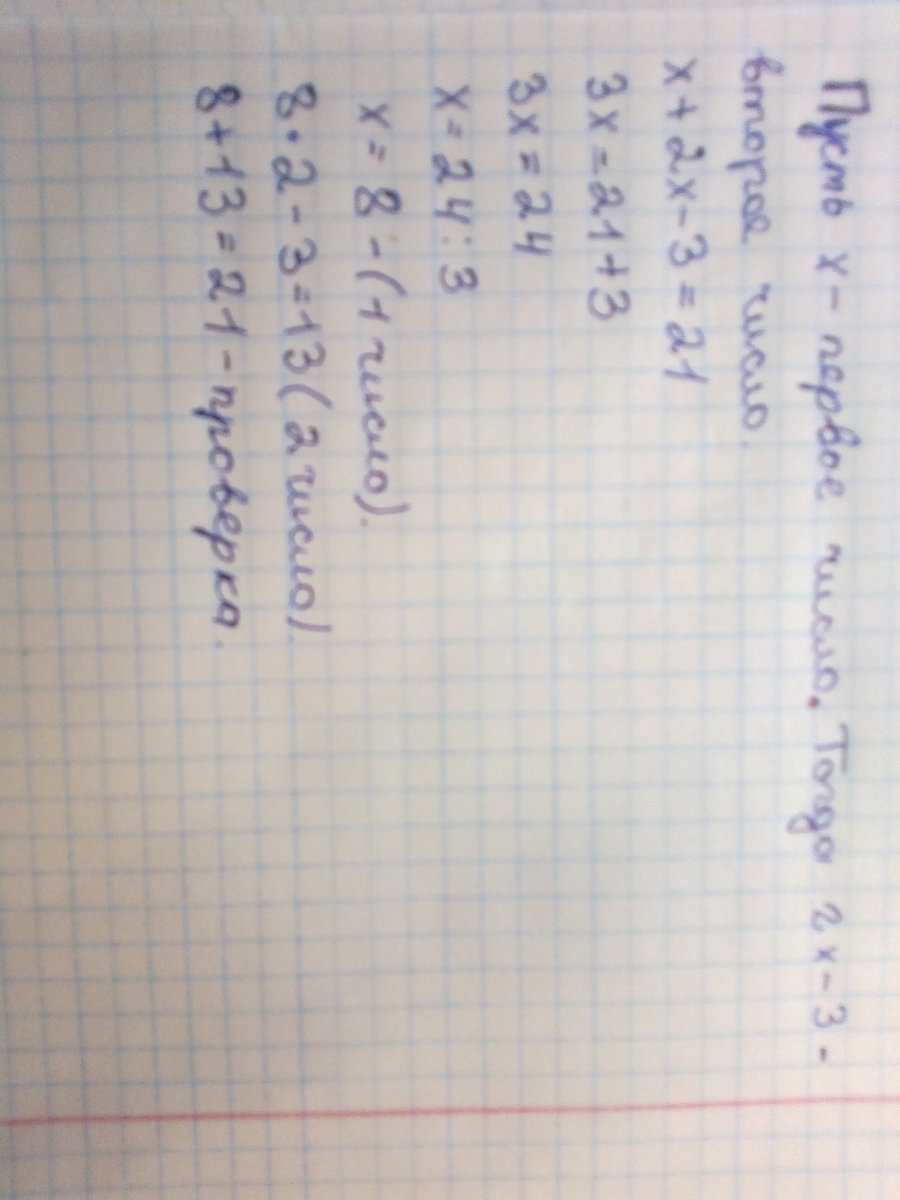 Пусть x - первое число. Тогда 2x-3-
второе число.
x+2x-3=21
3x=21+3
3x=24
x=24:3
x=8-(1 число).
8·2-3=13(2 число)
8+13=21-проверка.